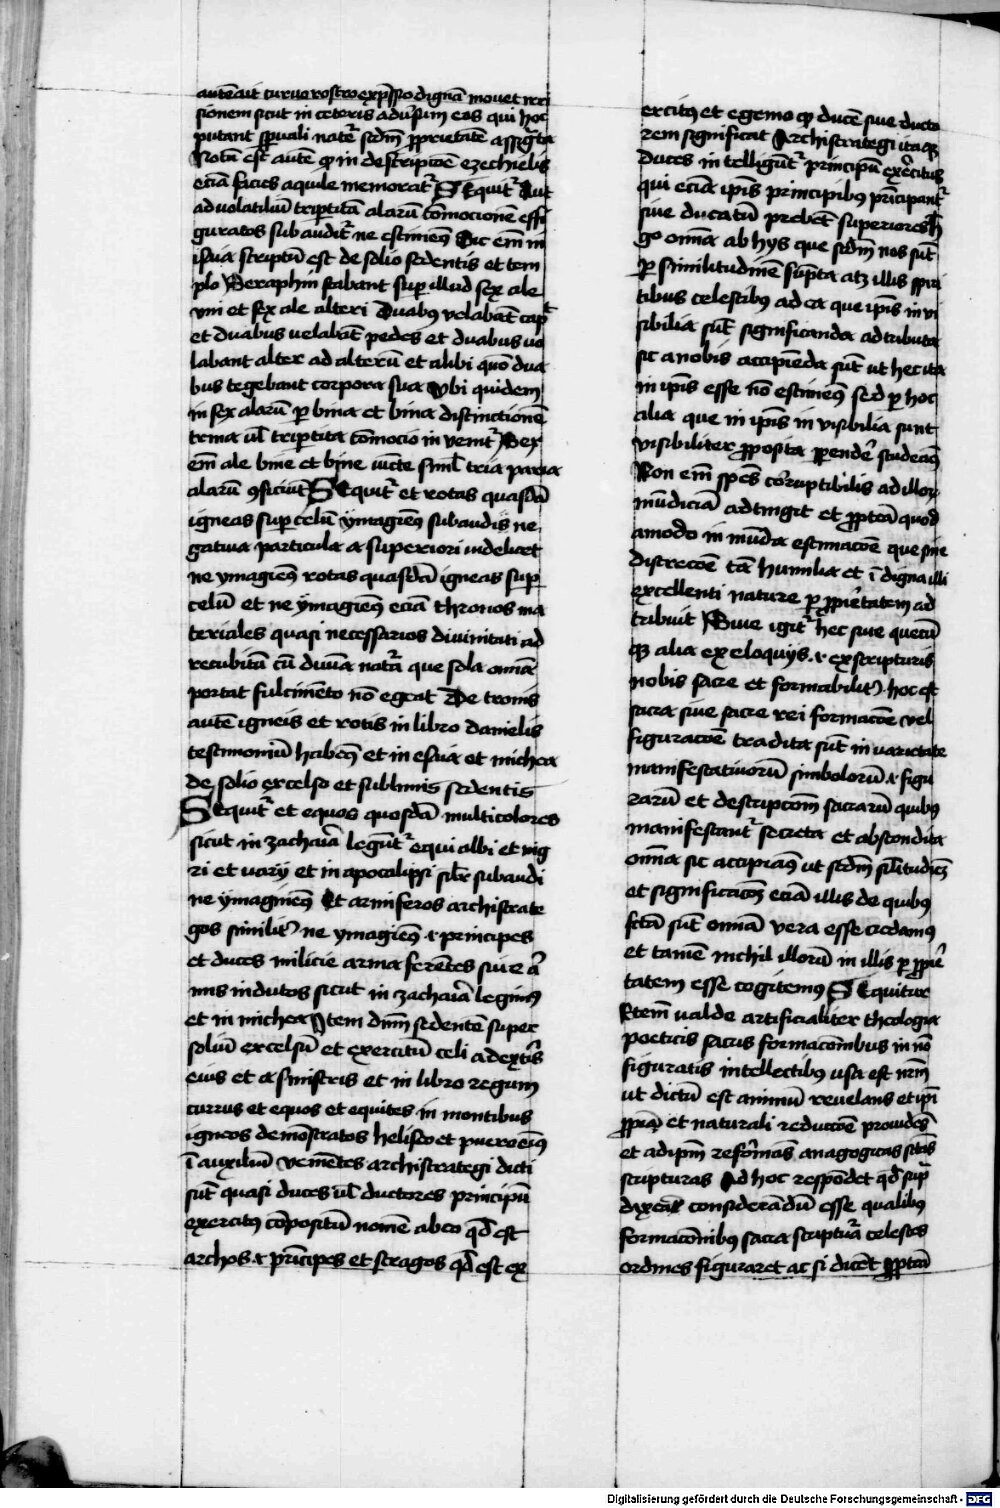 autē ait curuo rostro exp̄sso dignā mouet
sionem sicut in ceteris adūsum eos qui hoc
putant sp̄uali natē scdm̄ p̱prietatē assig̅ta
Nota est autē q̱ in descripcōe ezechielis
eciā facies aquile memorat᷑ Sequit᷑ Aut
ad volatiliū tripertitā alarū cōmocionem effi
guratos subaudit᷑ ne estimeꝰ Sic em̄ in
isaia scriptū est de solio sedentis et tem
plo Seraphin stabant super illud sex ale
vni et sex ale alteri Duabꝰ velabāt cap̄t
et duabus velabāt pedes et duabus uo
labant alter ad alterū et alibi quō dua
bus tegebant corpora sua vbi quidem
in sex alarū per bina et bina distinctionē
trina ul̄ tripertita cōmocio in venit᷑ Sex
em̄ ale bine et bine iūcte siml̄ tria paria
alarū ꝯficiūt Sequit᷑ et rotas quasdā
igneas super celū ymagieꝰ subaudis ne
gatiua particula a superiori videlicet
ne ymagieꝰ rotas quasdā igneas super
celū et ne ymagieꝰ eciā thronos ma
teriales quasi necessarios diuinitati ad
recubitū cū diuīa nat᷑a que sola omīa
portat fulcimēto nō egeat De tronis
autē igneis et rotis in libro danielis
testimoniū habeꝰ et in esaia et michea
de solio excelso et sublimis sedentis
Sequit᷑ et equos quosdā multicolores
sicut in zachaīa legūt᷑ equi albi et nig
ri et uarij et in apocalipsi silr̄ subaudi
ne ymagineꝰ Et armiferos archistrate
gos similit᷑ ne ymagieꝰ .i. principes
et duces milicie arma ferētes siue ar̄
mis indutos sicut in zachaīa legimꝰ
et in michea Item dnm̄ sedentē super
soliū excelsū et exercitū celi a dextris
eius et a sinistris et in libro regum
currus et equos et equites in montibus
igneos demōstratos heliseo et puero eiꝰ
ī auxiliū veniētes archistrategi dicti
sūt quasi duces ul̄ ductores principū
exercitꝰ cōpositū nomē ab eo qd̄ est
archos .i. prīcipes et stragos qd̄ est ex
ercitꝰ et egemo q̱ ducē siue ducto
rem significat Archistrategi itaq̱
Duces in telligūt᷑ principū ex̄ercitus
qui eciā ip̄is principibus prīcipant᷑
siue ducatū prebēt superiores
go omīa ab hys que scdm̄ nos sūt
per similitudinē sūpta atq̱ illis spiri
tibus celestibꝰ ad ea que ip̄is in vi
sibilia sūt significanda adtributa
sic a nobis accipiēda sūt ut hec ita
in ip̄is esse nō estimeꝰ sed per hoc
alia que in ip̄is in visibilia sunt
visibiliter p̱posita p̱pendere studeaꝰ
Non em̄ sp̄es corruptibilis ad illoꝝ
mūdiciā adtingit et p̱pterea quod
amodo in mūda estimacōe que sine
discrecōe tā humilia et ī digna illi
excellenti nature per p̱prietatem ad
tribuit Siue igit᷑ hec siue quecū
q̱ alia ex eloquys .i. ex scripturis
nobis sacre et formabilit᷑ hoc est
sacra siue sacre rei formacōe vel
figuracōe tradita sūt in varietate
manifestatiuorū simbolorū .i. figu
rarū et descripcom̄ sacrarū quibꝰ
manifestant᷑ secreta et abscondita
omīa sic accipiaꝰ ut scdm̄ sil̄itudinē
et significacōꝫ eciā illis de quibꝰ
sctā sūt omīa vera esse credamꝰ
et tamē nichil illorū in illis per p̱prie
tatem esse cogitemꝰ Sequitur
Etem̄ valde artificialiter theologia
poeticis sacris formacom̄bus in nō
figuratis intellectibꝰ vsa est nrm̄
ut dictū est animū reuelans et ip̄i
p̱priā et naturali reductōe prouidēs
et ad ip̄m reformās anagogicas sctās
scripturas Ad hoc respōdet qd̄ sup̄
dixerat considerādū esse qualibus
formacom̄ibꝰ sacra scriptura celestes
ordines figuraret ac si dicēt p̱pterea